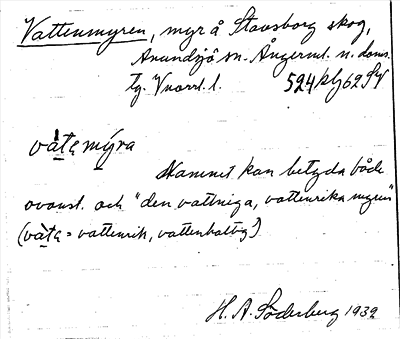 Vattenmyren, myr å Stavsborg skog,
Anundsjö sn. Ångerml. n. doms.
tg. Vnorrl. l. 524 klg 62 SV
våte mýra
Namnet kan betyda både
ovanst. och "den vattniga, vattenrika myren"
(våte = vattenrik, vattenhaltig)
H. A. Söderberg 1939